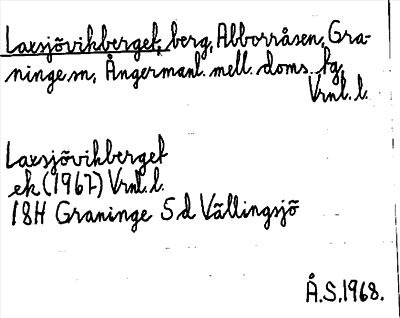 Laxsjövikberget, berg, Abborråsen, Gra-
ninge sn, Ångermanl. mell. doms. tg,
Vrnl. l.
Laxsjövikberget
ek (1967) Vrnl. l.
18H Graninge 5 d Vällingsjö
Å.S. 1968.